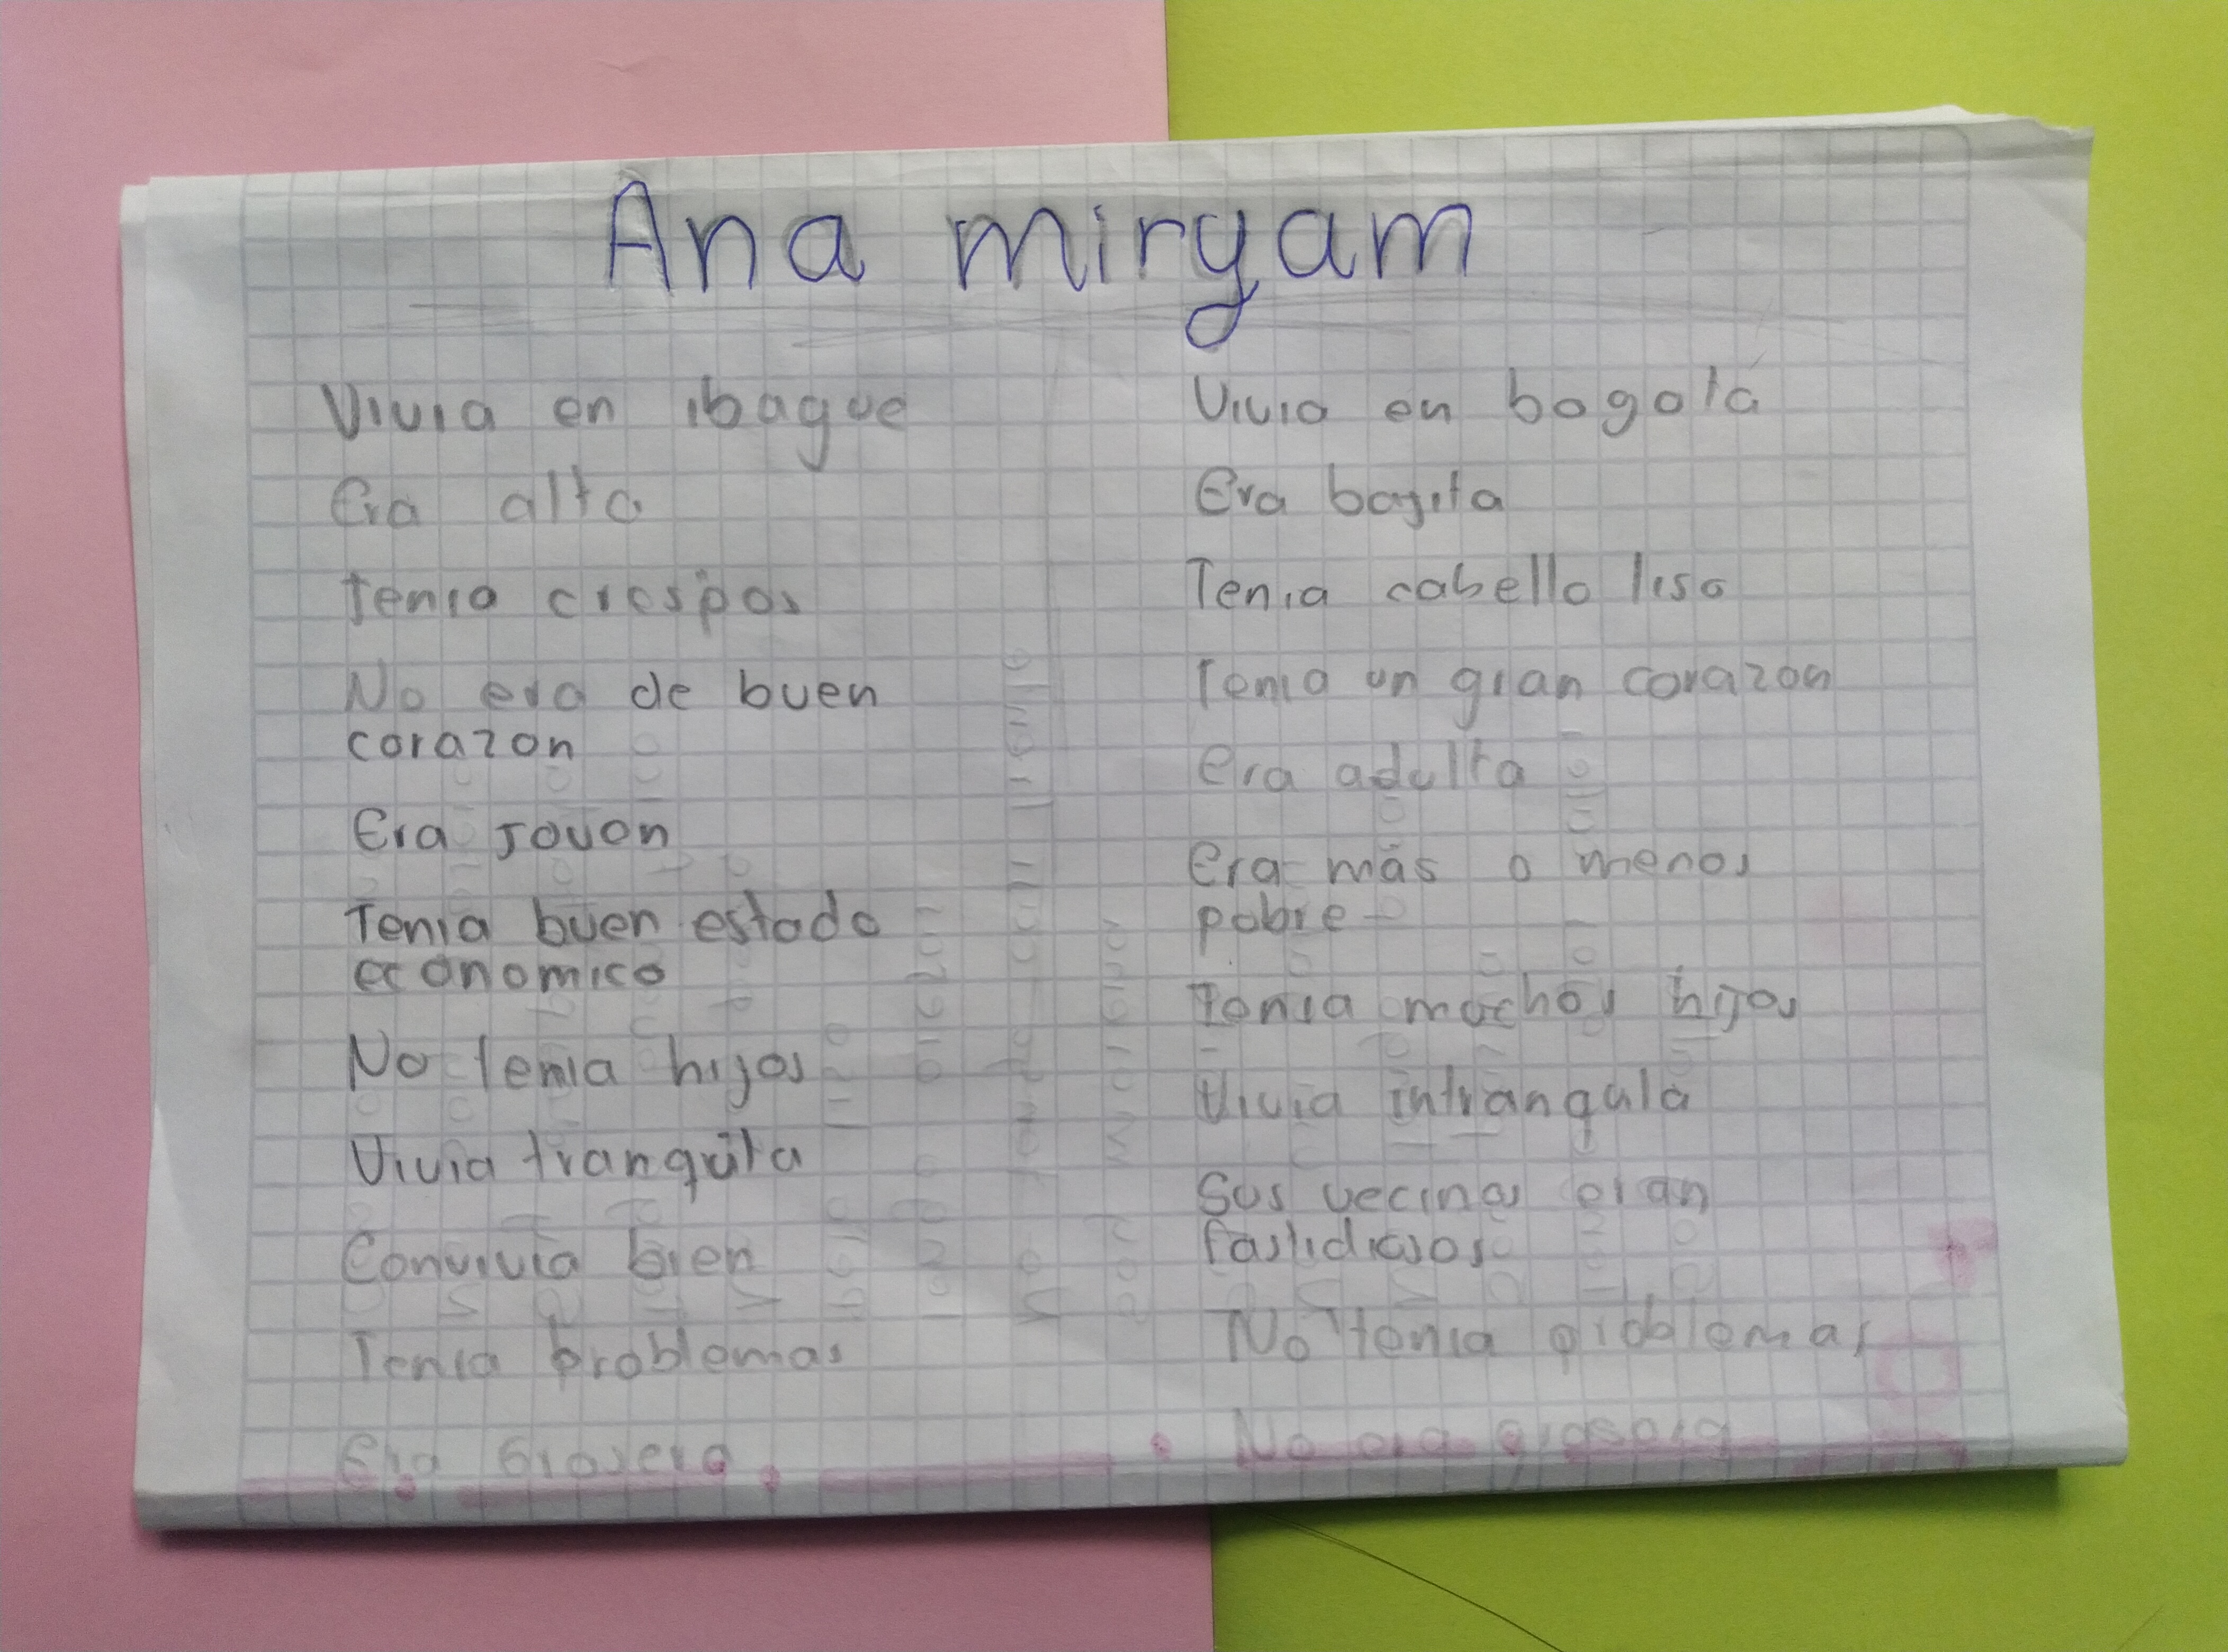 Ana miryam
Vivia en ibague
Era alta
Tenia crespos
No era de buen
corazon
Era joven
Tenia buen estado
economico
No tenia hijos
Vivia tranquila
Convivia bien
Tenia problemas
Era grosera
Vivia en bogota
Era bagita
Tenia cabello liso
Tenia un gran corazon
Era adulta
Era más o menos
pobre
Tenia muchos hijos
Vivia intranquila
Sus vecinos eran
No tenia problemas
No era grosera